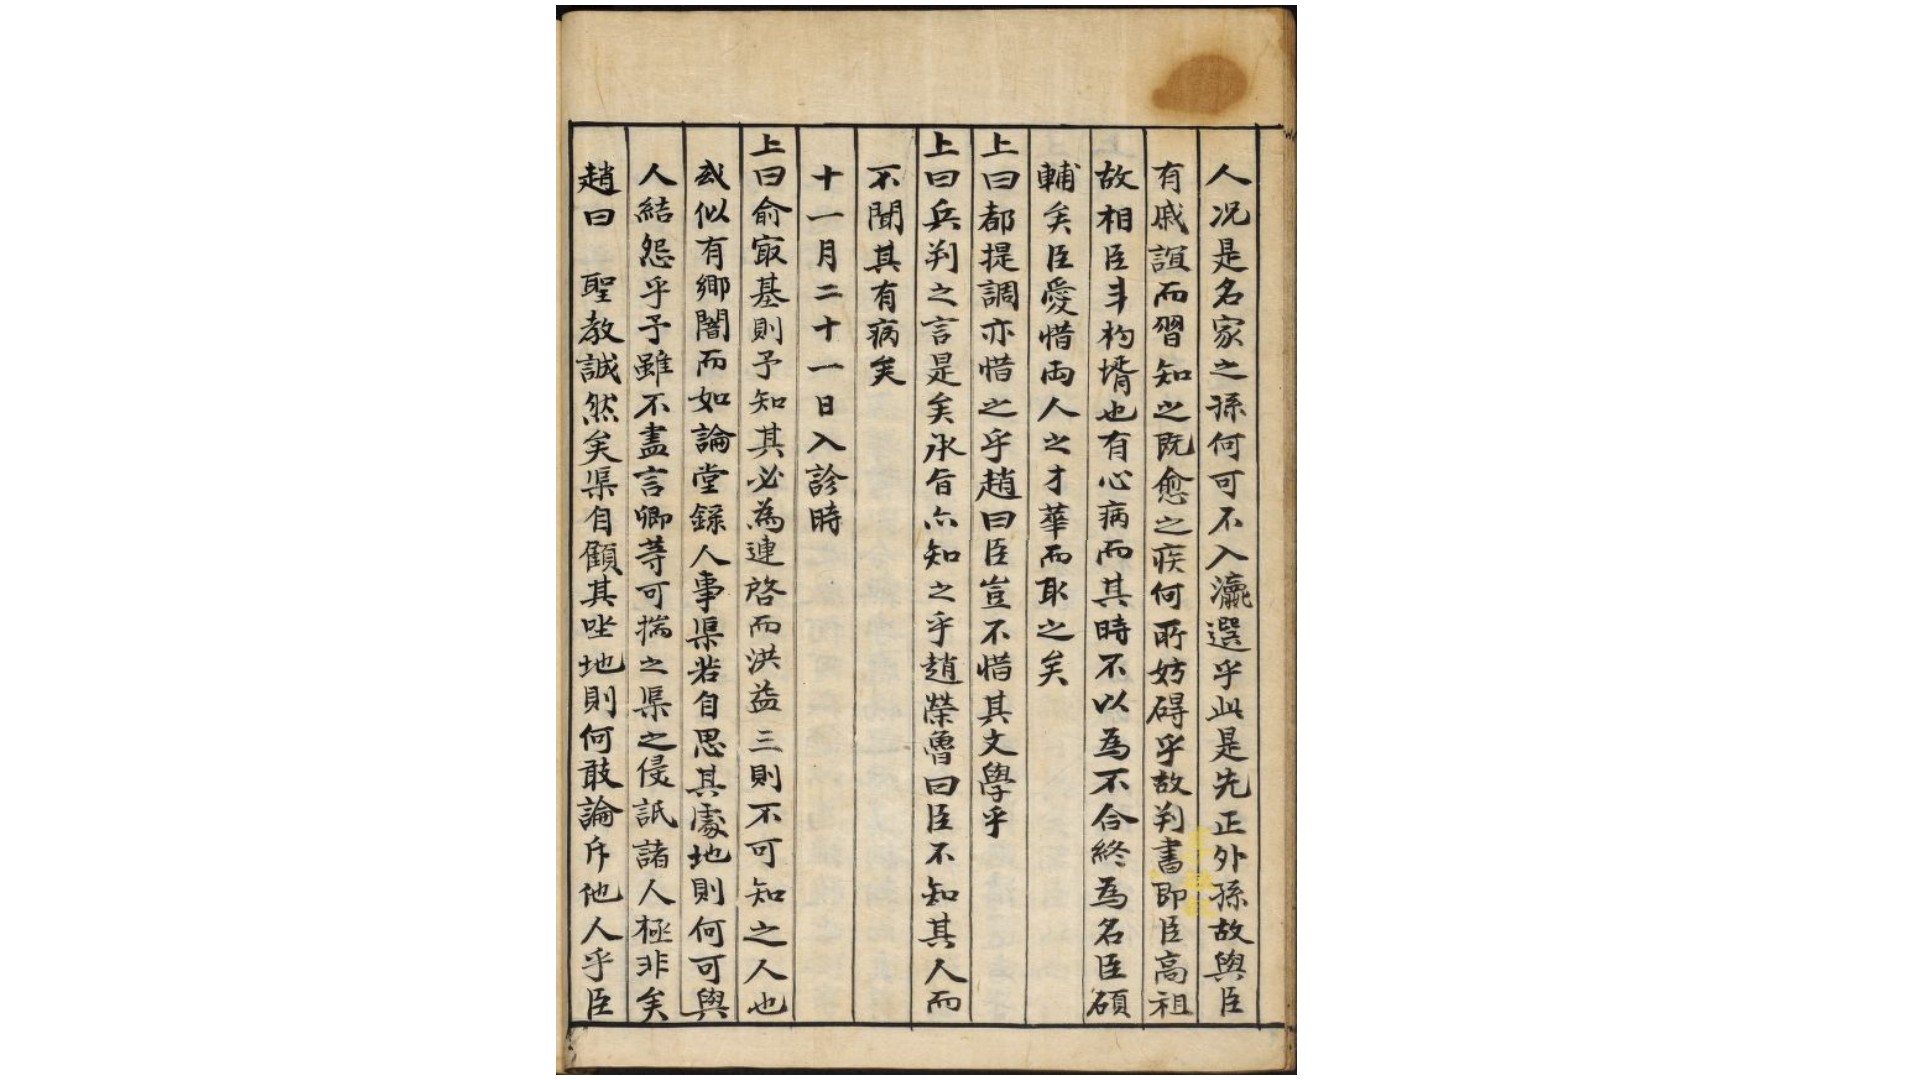 人况是名家之孫何可不入瀛選乎此是先正外孫故與臣
有戚誼而習知之既愈之疾何所妨碍乎故判書即臣高祖
故相臣斗杓壻也有心病而其時不以為不合終為名臣碩
輔矣臣愛惜両人之才華而取之矣
上曰都提調亦惜之乎趙曰臣豈不惜其文學乎
上曰兵判之言是矣承旨亦知之乎趙榮魯曰臣不知其人而
不聞其有病矣
十一月二十一日入診時
上曰俞㝡基則予知其必為連啓而洪益三則不可知之人也
或似有鄉闇而如論堂錄人事渠若自思其處地則何可與
人結怨乎予雖不盡言卿等可揣之渠之侵詆諸人極非矣
趙曰 聖教誠然矣渠自顧其坐地則何敢論斥他人乎臣